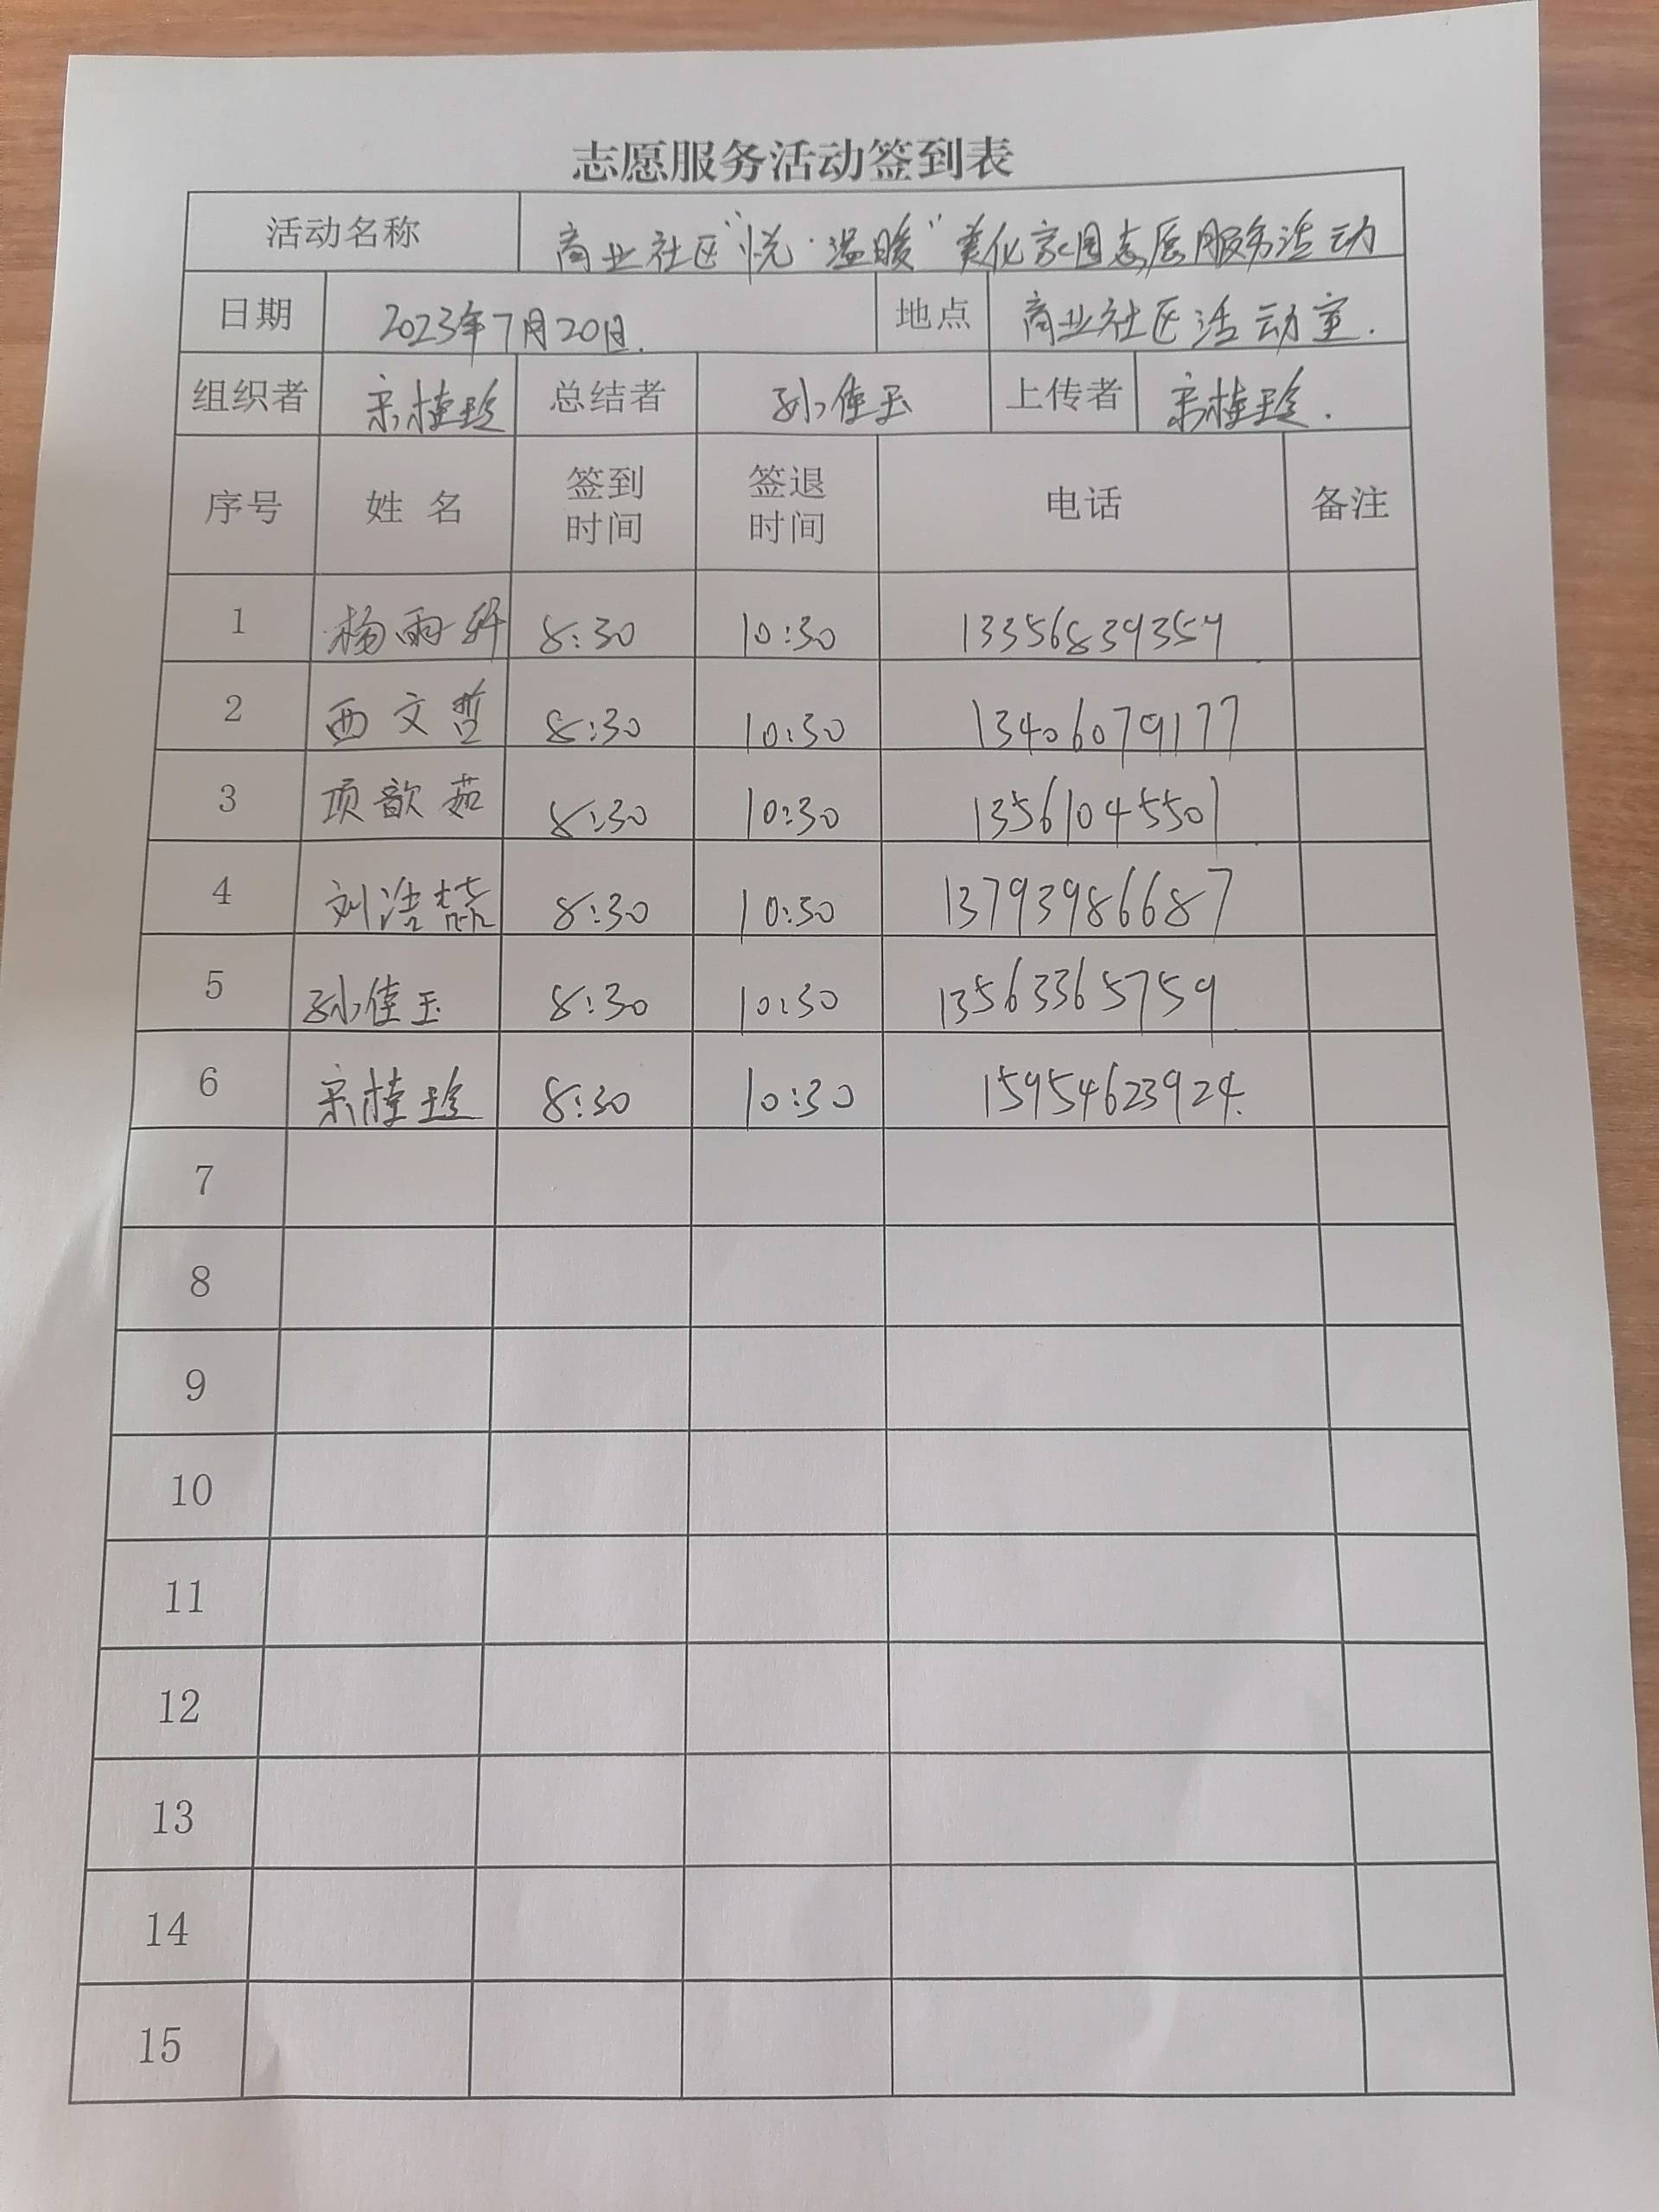 志愿服务活动签到表
活动名称 商业社区“悦·温暖”美化家园志愿服务活动
日期 2023年7月20日. 地点 商业社区活动室.
组织者 宋桂珍 总结者 孙佳玉 上传者 宋桂珍.
序号 姓 名 签到时间 签退时间 电话 备注
1 杨雨轩 8:30 10:30 13356839359
2 西文哲 8:30 10:30 13406079177
3 项歆茹 8:30 10:30 13561045501
4 刘浩 8:30 10:30 13793986687
5 孙佳玉 8:30 10:30 13563365759
6 宋桂珍 8:30 10:30 15954623924.
7
8
9
10
11
12
13
14
15